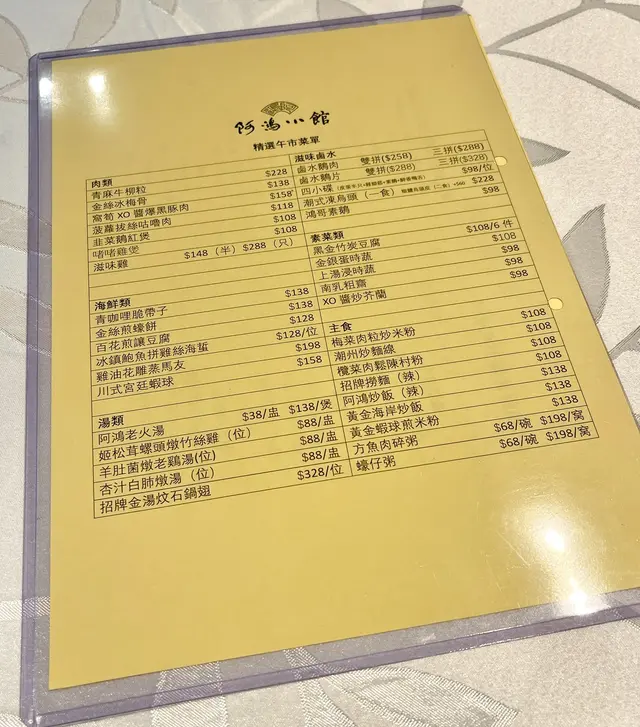 阿鴻小館
精選午市菜單
肉類
青麻牛柳粒 $228
金絲冰梅骨 $138
窩筍 XO 醬爆黑豚肉 $158
菠蘿拔絲咕嚕肉 $118
韭菜鵝紅煲 $108
啫啫雞煲 $108
滋味雞 $148（半）$288（只）
海鮮類
青咖哩脆帶子 $138
金絲煎蠔餅 $138
百花煎讓豆腐 $128
冰鎮鮑魚拼雞絲海蜇 $128/位
雞油花雕蒸馬友 $198
川式宮廷蝦球 $158
湯類
阿鴻老火湯 $38/盅 $138/煲
姬松茸螺頭燉竹絲雞（位） $88/盅
羊肚菌燉老鷄湯(位) $88/盅
杏汁白肺燉湯（位） $88/盅
招牌金湯炆石鍋翅 $328/位
滋味鹵水
鹵水鵝肉 雙拼($258) 三拼($288)
鹵水鵝片 雙拼($288) 三拼($328)
四小碟 $98/位
潮式凍烏頭（一食） （二食）+$60 $228
鴻哥素鵝 $98
素菜類
黑金竹炭豆腐 $108/6 件
金銀蛋時蔬 $108
上湯浸時蔬 $98
南乳粗齋 $98
XO 醬炒芥蘭 $98
主食
梅菜肉粒炒米粉 $108
潮州炒麵線 $108
欖菜肉鬆陳村粉 $108
招牌撈麵（辣） $108
阿鴻炒飯（辣） $138
黃金海岸炒飯 $138
黃金蝦球煎米粉 $138
方魚肉碎粥 $68/碗 $198/窩
蠔仔粥 $68/碗 $198/窩